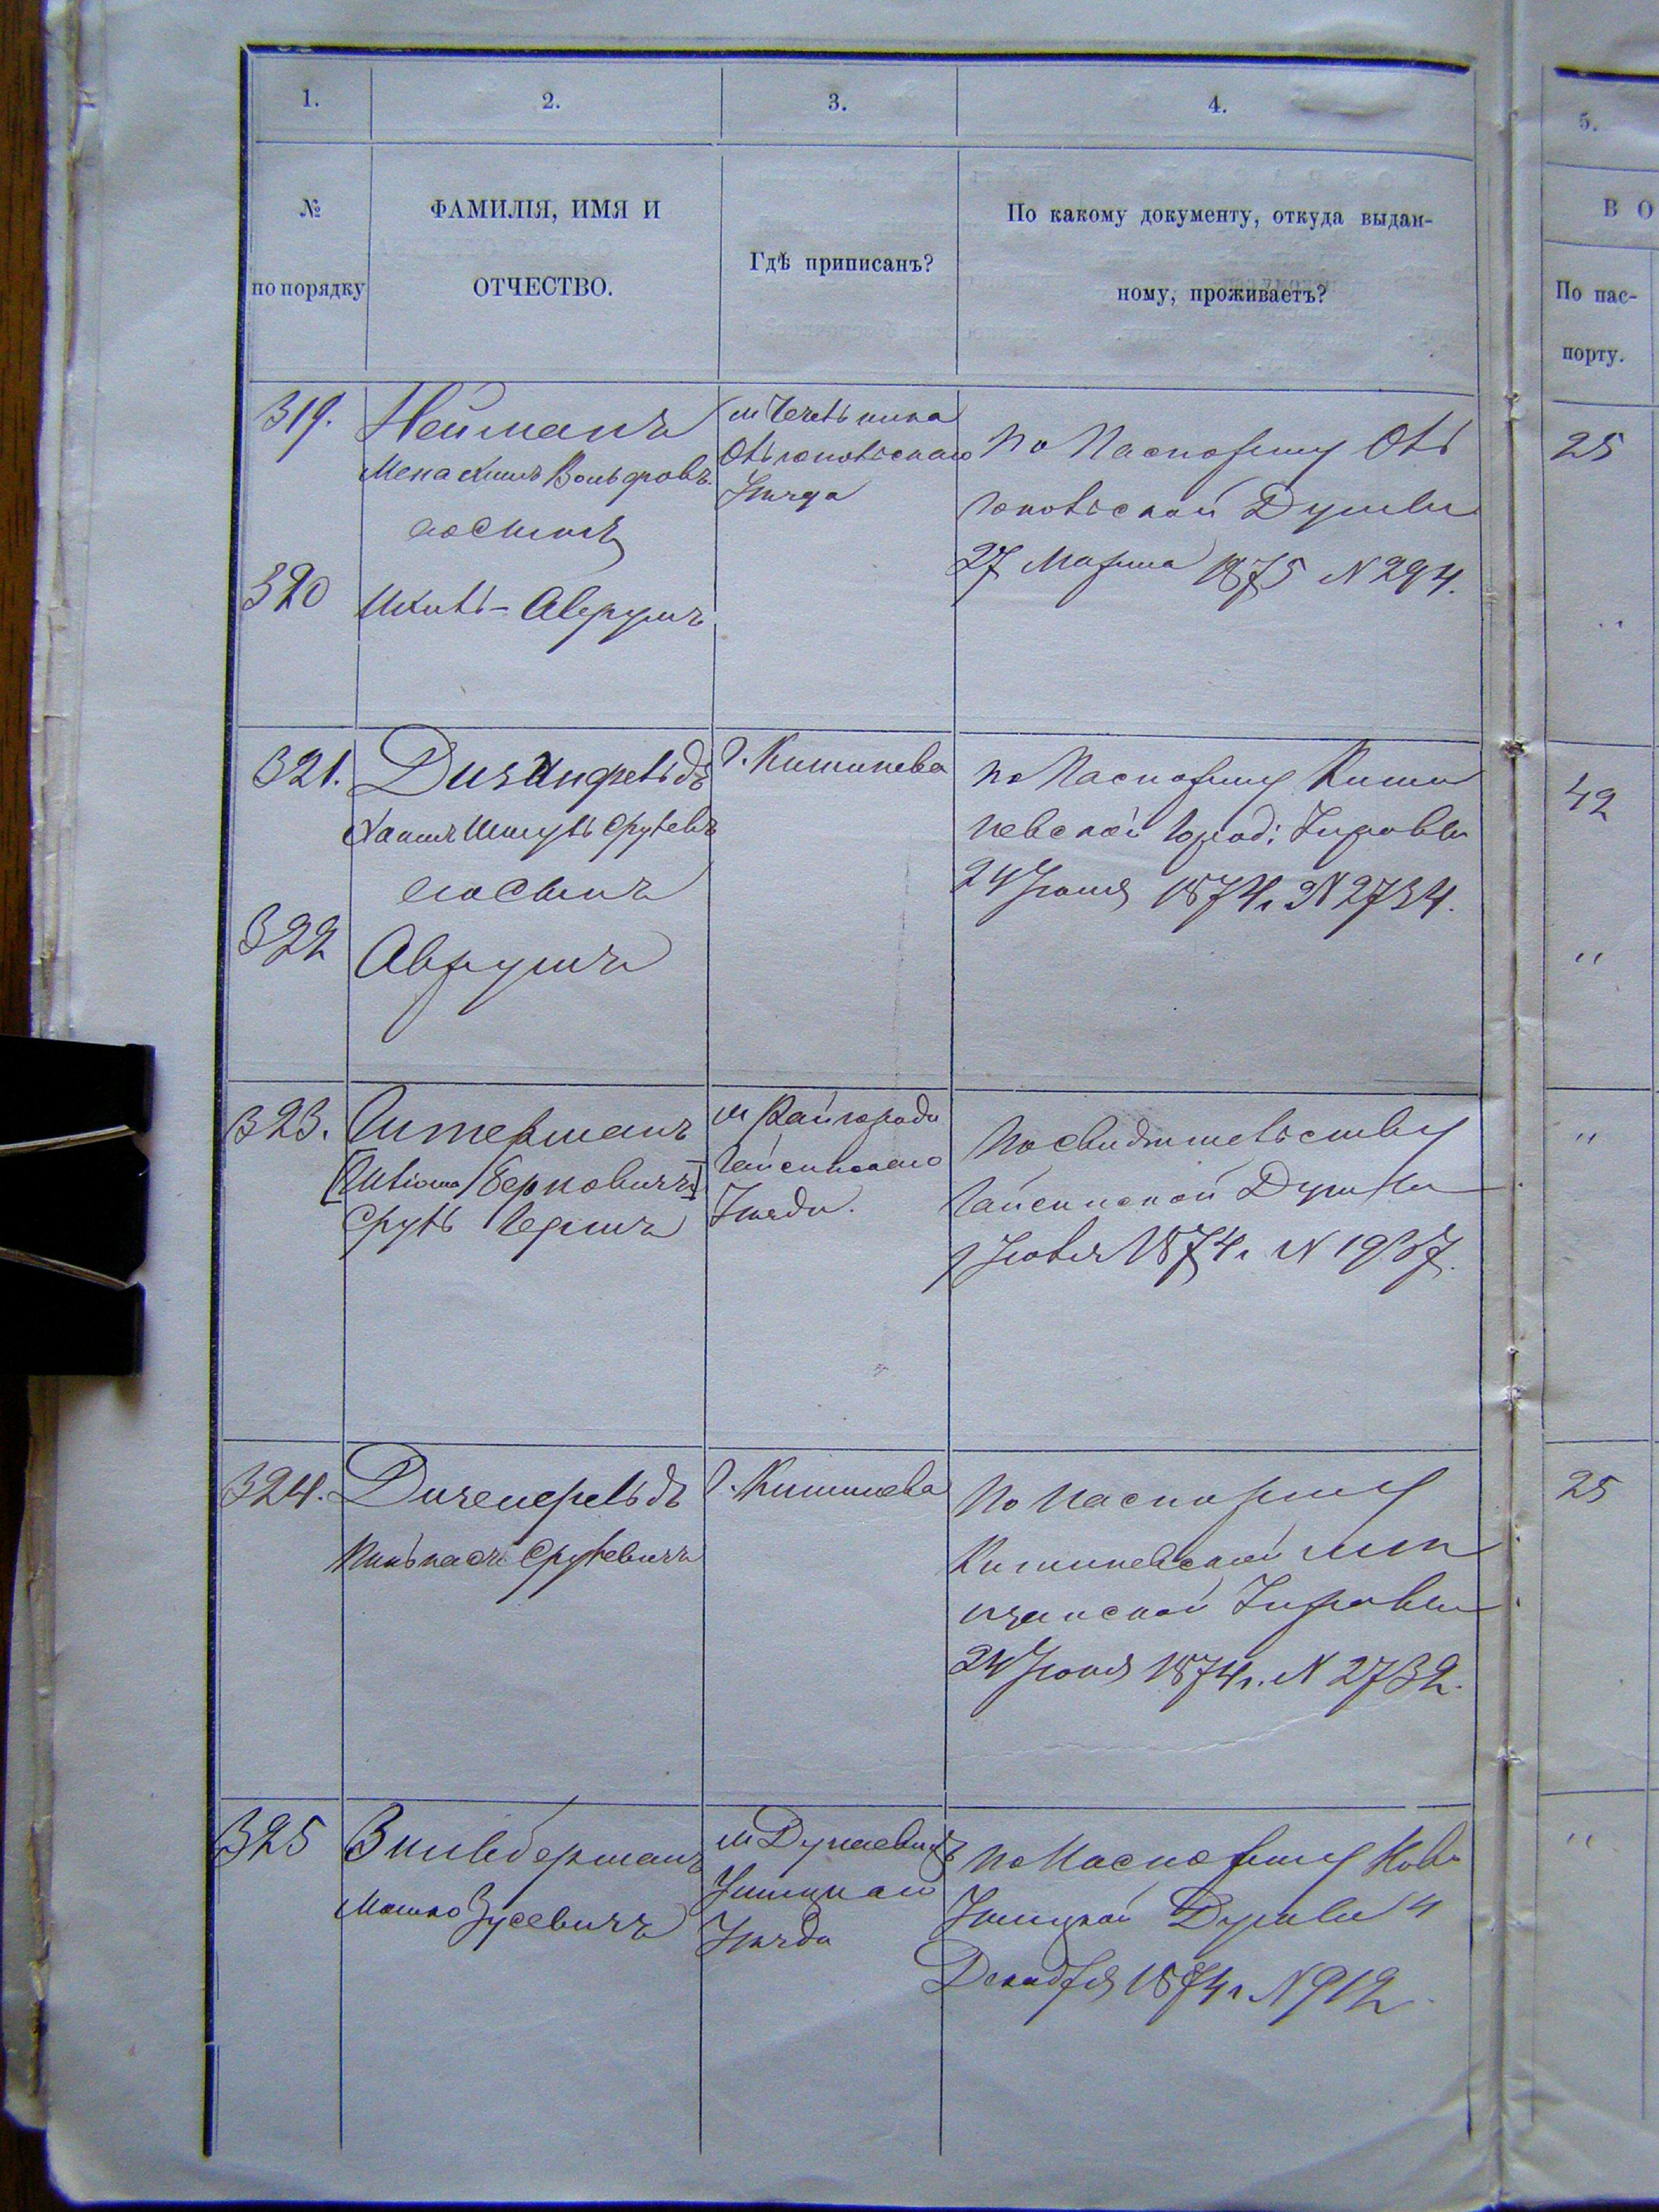 1.
2.
3.
4.
5.
№
по порядку
ФАМИЛІЯ, ИМЯ И
ОТЧЕСТВО.
Гдѣ приписанъ?
По какому документу, откуда выдан-
ному, проживаетъ?
В О
По пас-
порту.
319.
Нейманъ
Менахимъ Вольфровъ
его Сынъ
м Чечельника
Ольгопольскаго
Уѣзда
По Паспорту Оль
гопольской Думы
27 Марта 1875 N 294.
25
320
Ицикъ-Аврумъ
"
321.
Дизинфельдъ
Хаимъ Шмуль Срулевъ
его Сынъ
г. Кишинева
по Паспорту Киши
невской Город: Управы
24 Іюня 1874 г. N 2734.
42
322
Аврумъ
"
323.
Штерманъ
[Шліома Берковичъ]
Сруль Гершъ
м Райгорода
Гайсинскаго
Уѣзда.
По Свидѣтельству
Гайсинской Думы
9 Іюля 1874 г. N 1987.
"
324.
Дизенфельдъ
Пинькасъ Срулевичъ
г. Кишинева
По паспорту
Кишиневской мѣ
щанской Управы
24 Іюня 1874 г. N 2732.
25
325
Зильберманъ
Мошко Зусевичъ
м Дунаевицъ
Ушицкаго
Уѣзда
по Паспорту Ново
Ушицкой Думы 4
Декабря 1874 г N 912
"